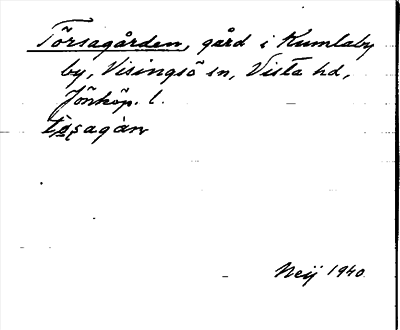 Törsagården, gård i Kumlaby
by, Visingsö sn, Vista hd,
Jönköp. l.
Neij 1940